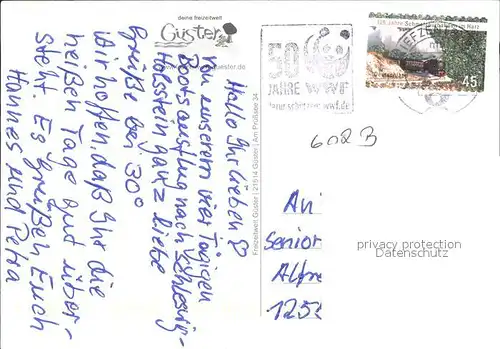 deine freizeitwelt
Güster
Hallo Ihr Lieben
von unserem vier Tägigen
Bootsausflug nach Schleswig-
Holsstein ganz liebe
Grüße bei 30°
Wir hoffen, daß Ihr die
heißen Tage gut über-
steht. Es grüßen Euch
Hannes und Petra
Freizeitwelt Güster | 21514 Güster | Am Prüßsee 34
50
JAHRE WWF
wwf.de
BRIEFZENTRUM
125 Jahre Schmalspurbahnen im Harz
45
602 B
An
Senior
Alfre
125
privacy protection
Datenschutz